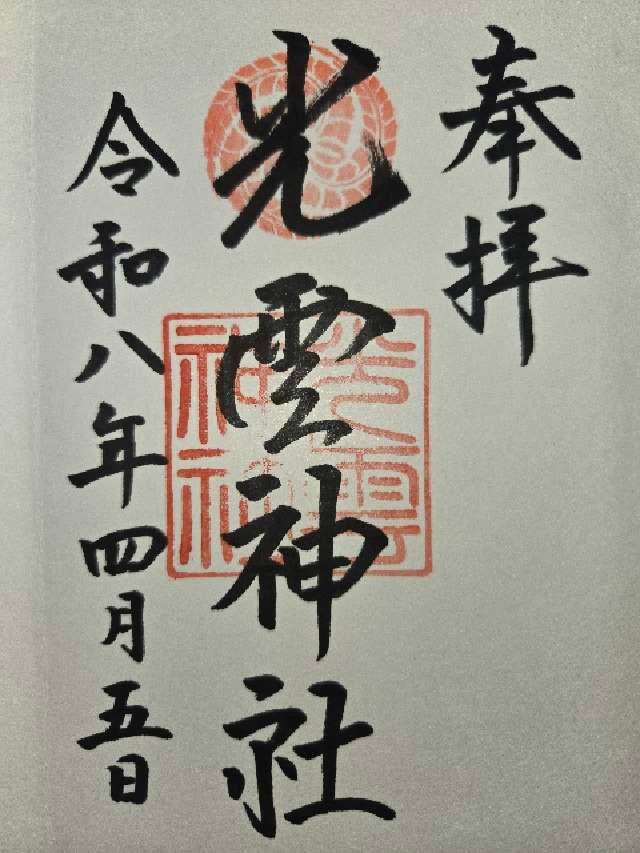 奉拝
光雲神社
令和八年四月五日
光雲
神社